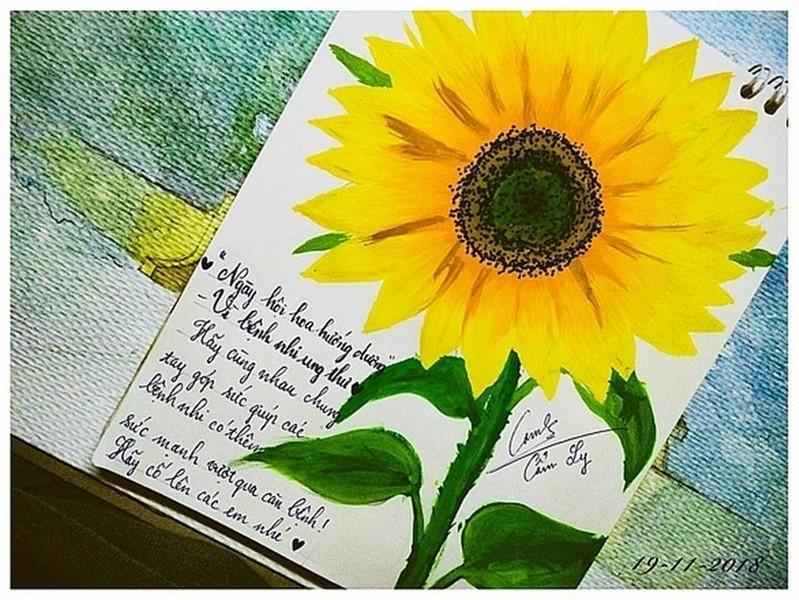 "Ngày hội hoa hướng dương"
- Vì bệnh nhi ung thư ♥
- Hãy cùng nhau chung
tay góp sức giúp các
bệnh nhi có thêm
sức mạnh vượt qua căn bệnh!
Hãy cố lên các em nhé ♥
Cẩm Ly
19-11-2018